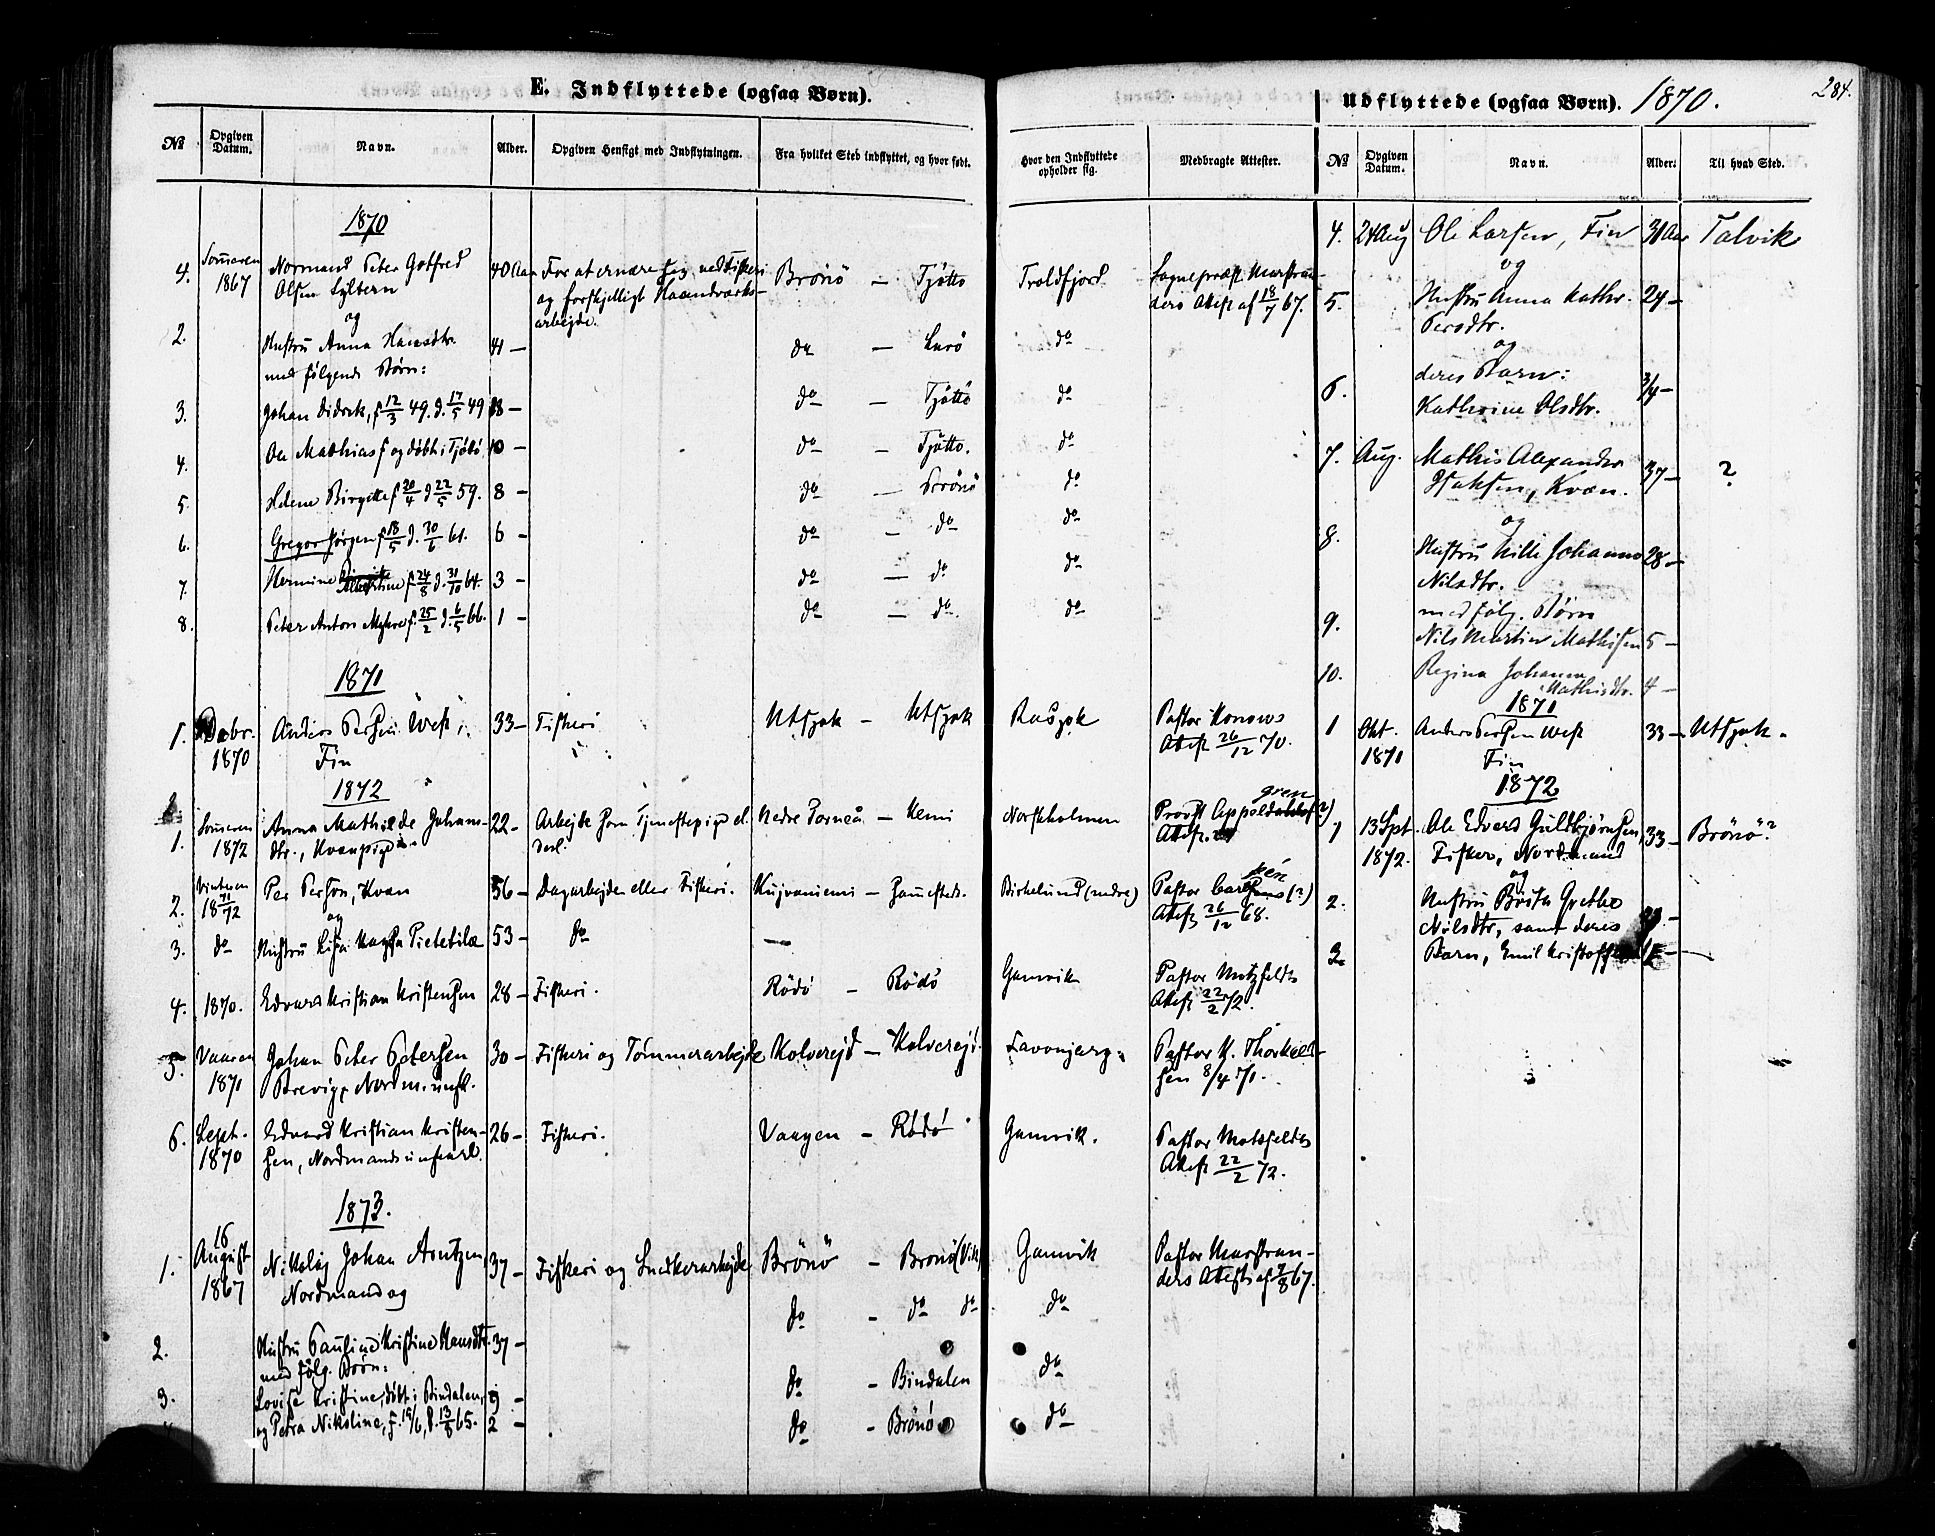 E. Indflyttede (ogsaa Børn).
№ Opgiven Datum. Navn. Alder. Opgiven Hensigt med Indflytningen. Fra hvilket Sted indflyttet, og hvor født. Hvor den Indflyttede opholder sig. Medbragte Attester.
1870
4. Sommeren Normand Peter Gotfred 40 Aar For at ernære sig ved Fiskeri Brönö — Tjötto Troldfjord Sognepræst Marstran-
1867 Olsen og forskjelligt Haandværks- ders Attest af 18/7 67.
og arbejde.
2. Hustru Anna Hansdtr. 41 — do — Lurö do
med følgende Børn:
3. Johan Didrik, f 12/3 49. d. 17/5 49 18 — do — Tjöttö do
4. Ole Mathias f og døbt i Tjøtö. 10 — do — Tjötto. do
5. Helene Birgitte f 20/4 d 22/5 59. 8 — do — Brönö do
6. Gregor Jörgen f 18/5 d. 30/6 61. 6 — do — do do
7. Hermine Albertine f. 24/8 d. 31/10 64. 3 — do — do do
8. Peter Anton f. 25/2 d. 6/5 66. 1 — do — do do
1871
1. Decbr. Anders Persen West, 33 — Fiskeri Utsjok — Utsjok Pastor Konows
1870 Fin Attest 26/12 70.
1872
1. Sommeren Anna Mathilde Johans- 22 — Arbejde som Tjenestepige el. Nedre Torneå — Kemi Norskholmen Provst
1872 dtr., Kvænpige desl. Attest
2. Vinteren Per Person, Kvæn 56 — Dagarbejde eller Fiskeri. Kujvaniemi — Sammesteds. Birkelund (nedre) Pastor (?)
18 71/72 og Attest 26/12 68.
3. do Hustru Lisa Kajsa Pietetilæ 53 — do —
4. 1870. Edvard Kristian Kristensen 28 — Fiskeri. Rödö — Rödö Gamvik Pastor Motzfeldts
Attest 22/2 72.
5. Vaaren Johan Peter Petersen 30 — Fiskeri og Tømmerarbejde Kolverejd — Kolverejd Lavonjarg. Pastor K. Thorkeel-
1871 Brevig, Nordm. sen 8/4 71.
6. Sept. Edvard Kristian Kristen- 26 — Fiskeri. Vaagen — Rödö Gamvik. Pastor Motzfeldts
1870 sen, Nordmand Attest 22/2 72.
1873.
1. 16 August 1867 Nikolaj Johan Arntzen, 37 — Fiskeri og Snedkerarbejde Brönö — Brönö (Vik) Gamvik Pastor Marstran-
Nordmand og ders Attest af 7/8 67.
2. Hustru Pauline Kristine Hansdtr. 37 — do — do do do
med følg. Børn:
3. Lovise Kristine, døbt i Bindalen, 9 — do — Bindalen do
og Petra Nikoline, f. 19/6, d. 13/8 65. 2 — do — Brönö do
Udflyttede (ogsaa Børn). 1870. 284.
№ Opgiven Datum. Navn. Alder. Til hvad Sted.
4. 24 Aug Ole Larsen, Fin 31 Aar Talvik
og
5. Hustru Anna Kathr. 24 —
Persdtr.
og
deres Barn:
6. Kathrine Olsdtr. 3/4 —
7. Aug. Mathis Alexander 37 — ?
Isaksen, Kvæn.
og
8. Hustru Johanne 28 —
Nilsdtr.
med følg. Børn
9. Nils Martin Mathissen 5 —
10. Regina Johanna
Mathisdtr. 4 —
1871
1 Okt. Anders Persen West 33 — Utsjok.
1871 Fin
1872
1 13 Sept. Ole Edvard Guldbjørnsen, 33 — Brönö?
1872. Fisker, Nordmand
og
2. Hustru Brita Grethe
Nilsdtr, samt deres
3. Barn, Emil